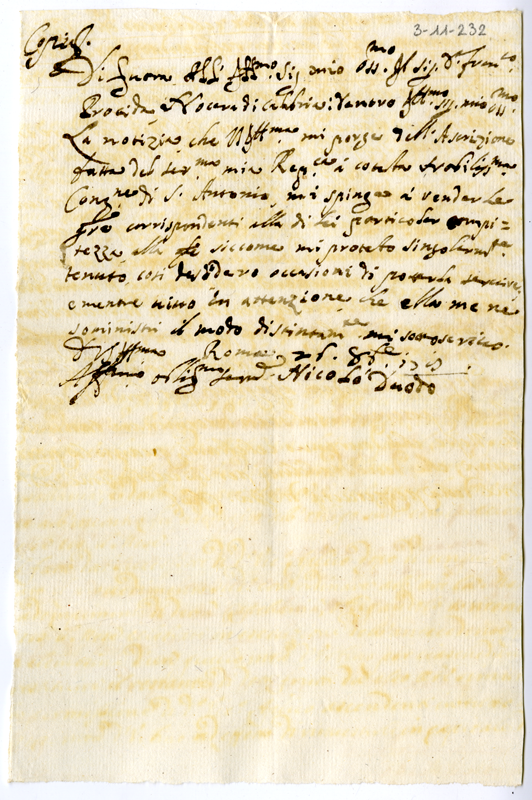 3-11-232
Copia.
Di fuora All' Ill.mo Sig. mio Oss.mo Il Sig. D. Fran.co
Procida Nocera di Calabria: dentro Ill.mo Sig. mio Oss.mo
La notizia che V.S. Ill.ma mi porge dell'Ascrizione
fatta del ser.mo mia à cotesta Nobiliss.ma
Cong.ne di S. Antonio, mi spinge à renderLe
gra corrispondenti alla di Lei particolar compi=
tezza, alla q.le siccome mi protesto singolarm.te
tenuto, così desidero occasioni di poterla servire,
e mentre vivo in attenzione, che ella me ne
soministri il modo distintam.te mi sottoscrivo.
D. V.S. Ill.ma Roma 26. 8bre
Aff.mo oblig.mo serv. Nicolò Duodo